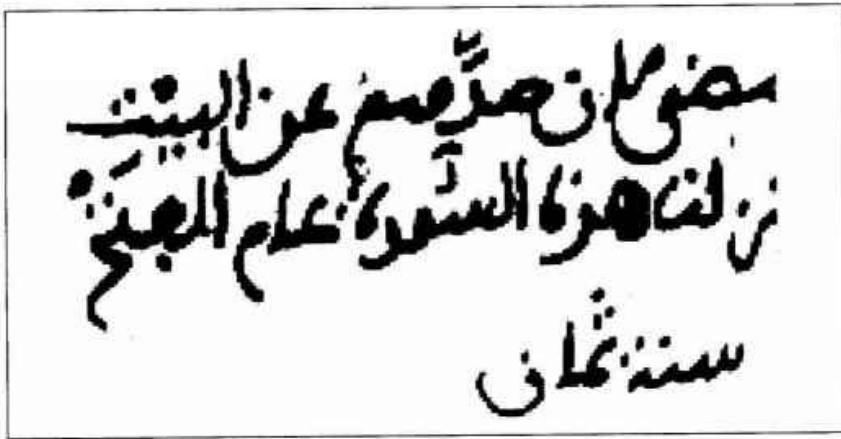 مضى لان صدّهم عن البيت
نزلت هذه السّورة عام الفتح
سنة ثمان